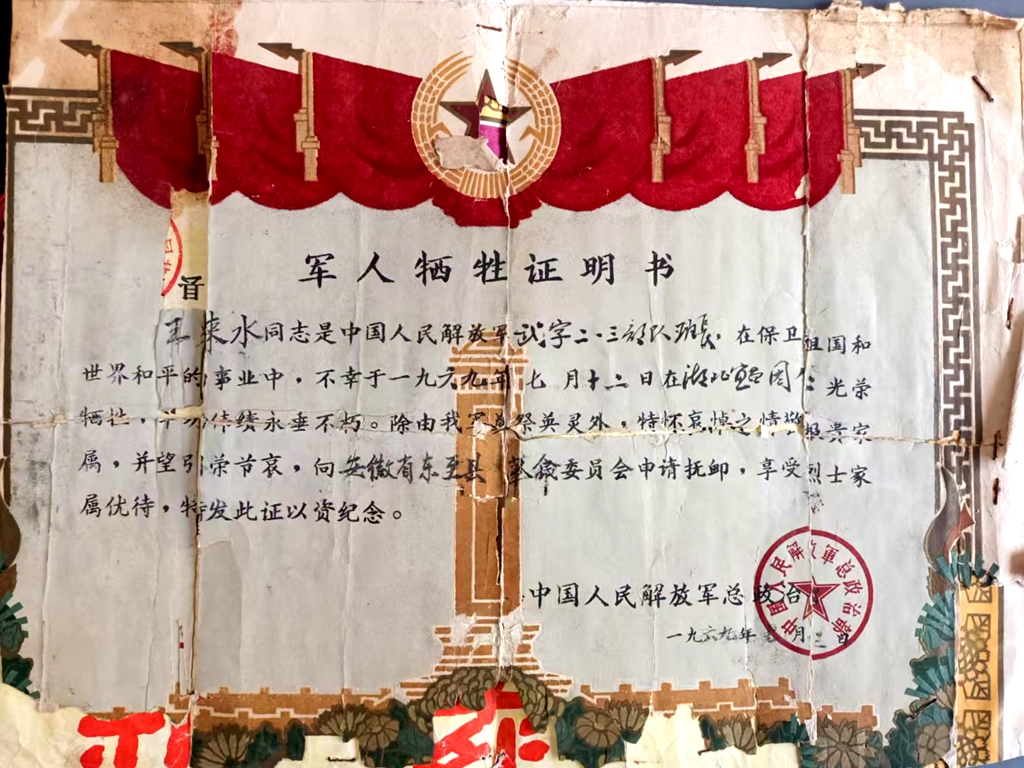 军人牺牲证明书
王来水同志是中国人民解放军武字二〇三部队班长 在保卫祖国和
世界和平的事业中，不幸于一九六九年七月十二日在湖北宜昌 光荣
牺牲，丰功伟绩永垂不朽。除由我军奠祭英灵外，特怀哀悼之情敬报贵家
属，并望引荣节哀，向安徽省东至县 委员会申请抚卹，享受烈士家
属优待，特发此证以资纪念。
中国人民解放军总政治
一九六九年 月 日
中国人民解放军总政治部